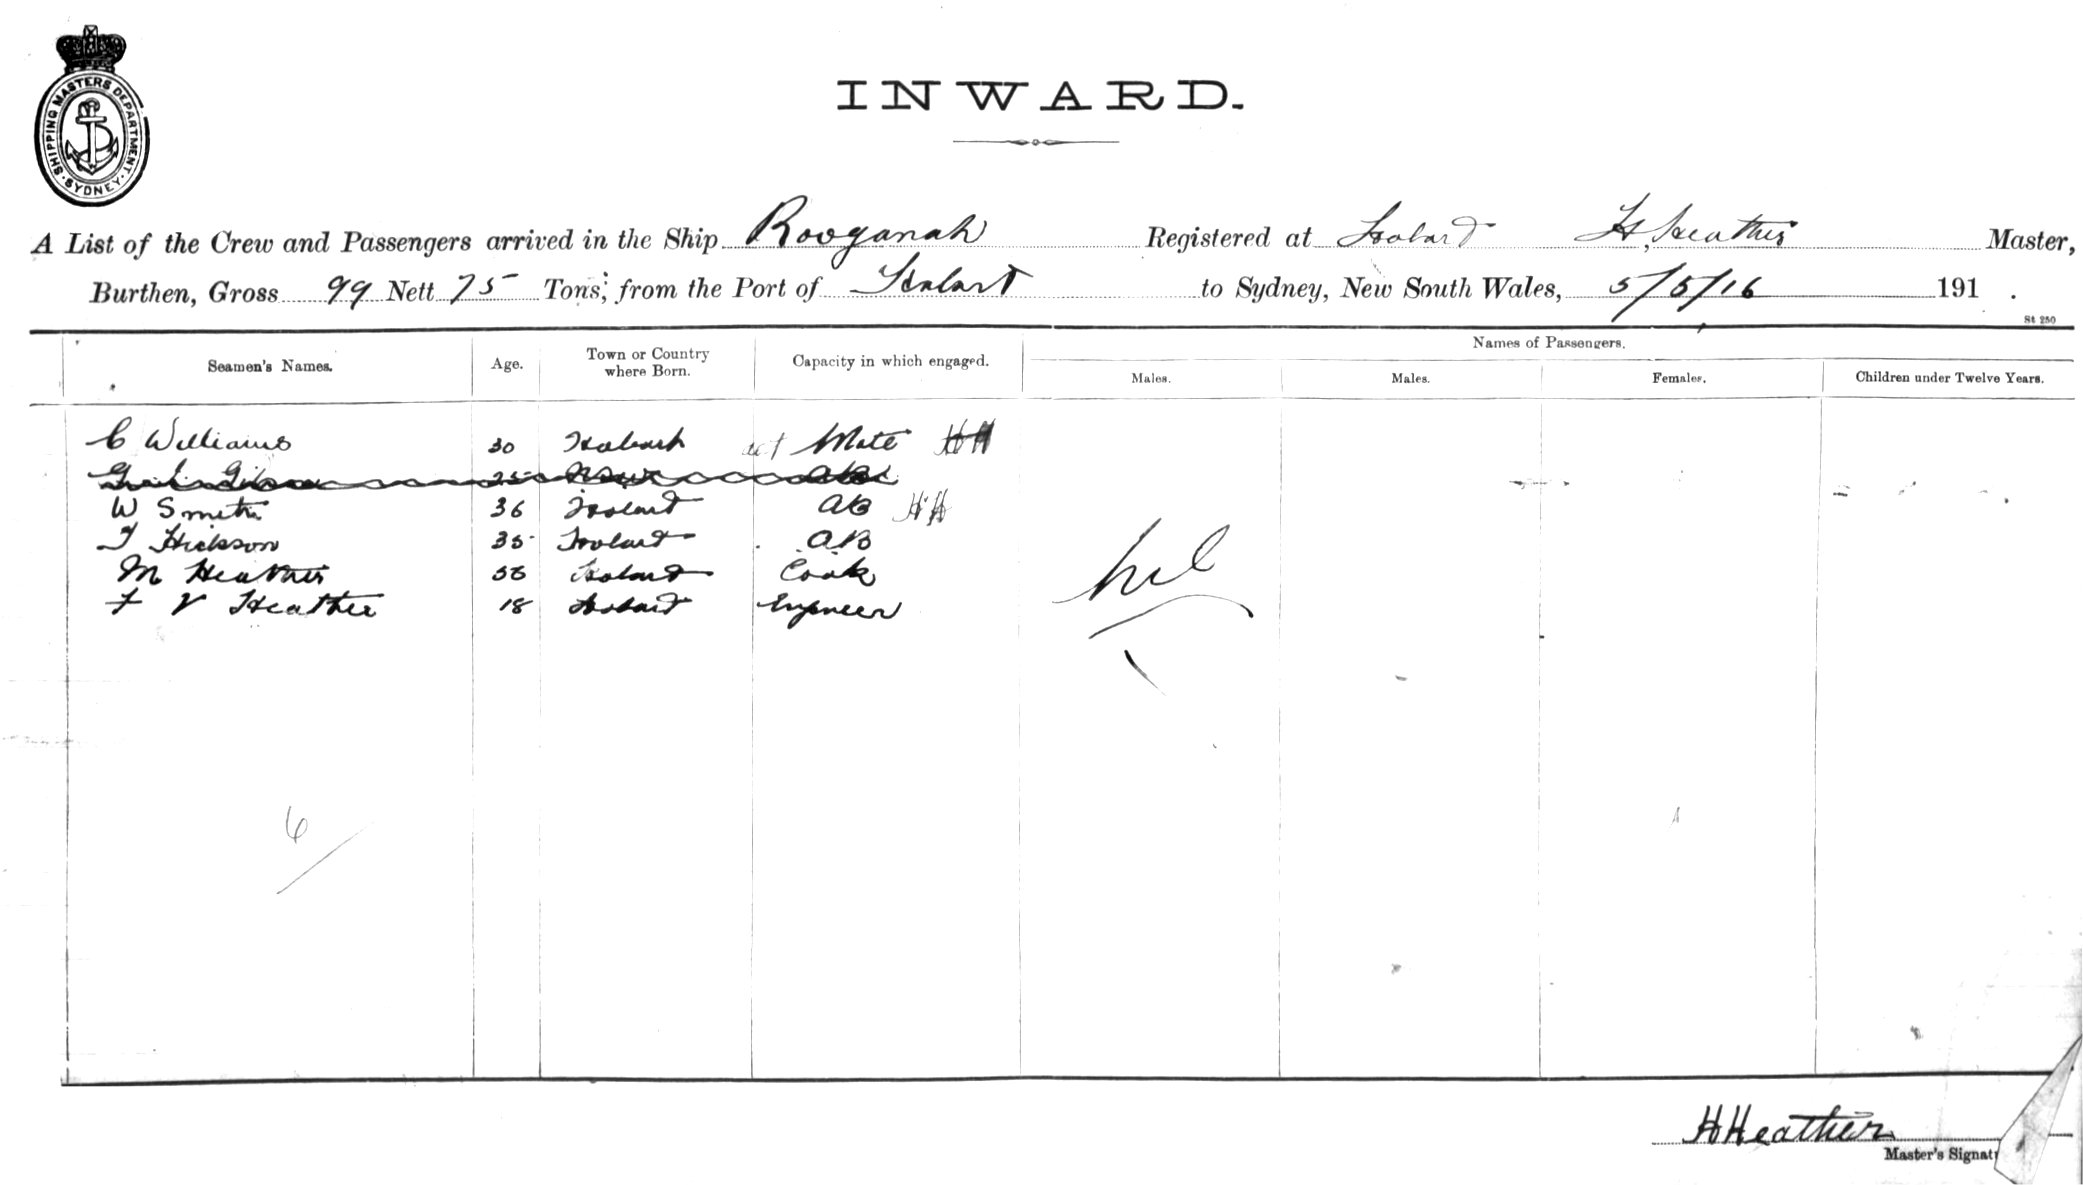 SHIPPING MASTERS DEPARTMENT. SYDNEY.
INWARD.
A List of the Crew and Passengers arrived in the Ship Rooganah Registered at Hobart H. Heather Master,
Burthen, Gross 99 Nett 75 Tons, from the Port of Hobart to Sydney, New South Wales, 5/5/16 191 .
St 250
Seamen's Names. Age. Town or Country where Born. Capacity in which engaged. Names of Passengers.
Males. Males. Females. Children under Twelve Years.
C Williams 30 Hobart act Mate HH
25 AB
W Smith 36 Hobart AB HH
T Hickson 35 Hobart AB
M Heather Hobart Cook
F V Heather 18 Hobart Engineer
nil
6
HHeather
Master's Signat